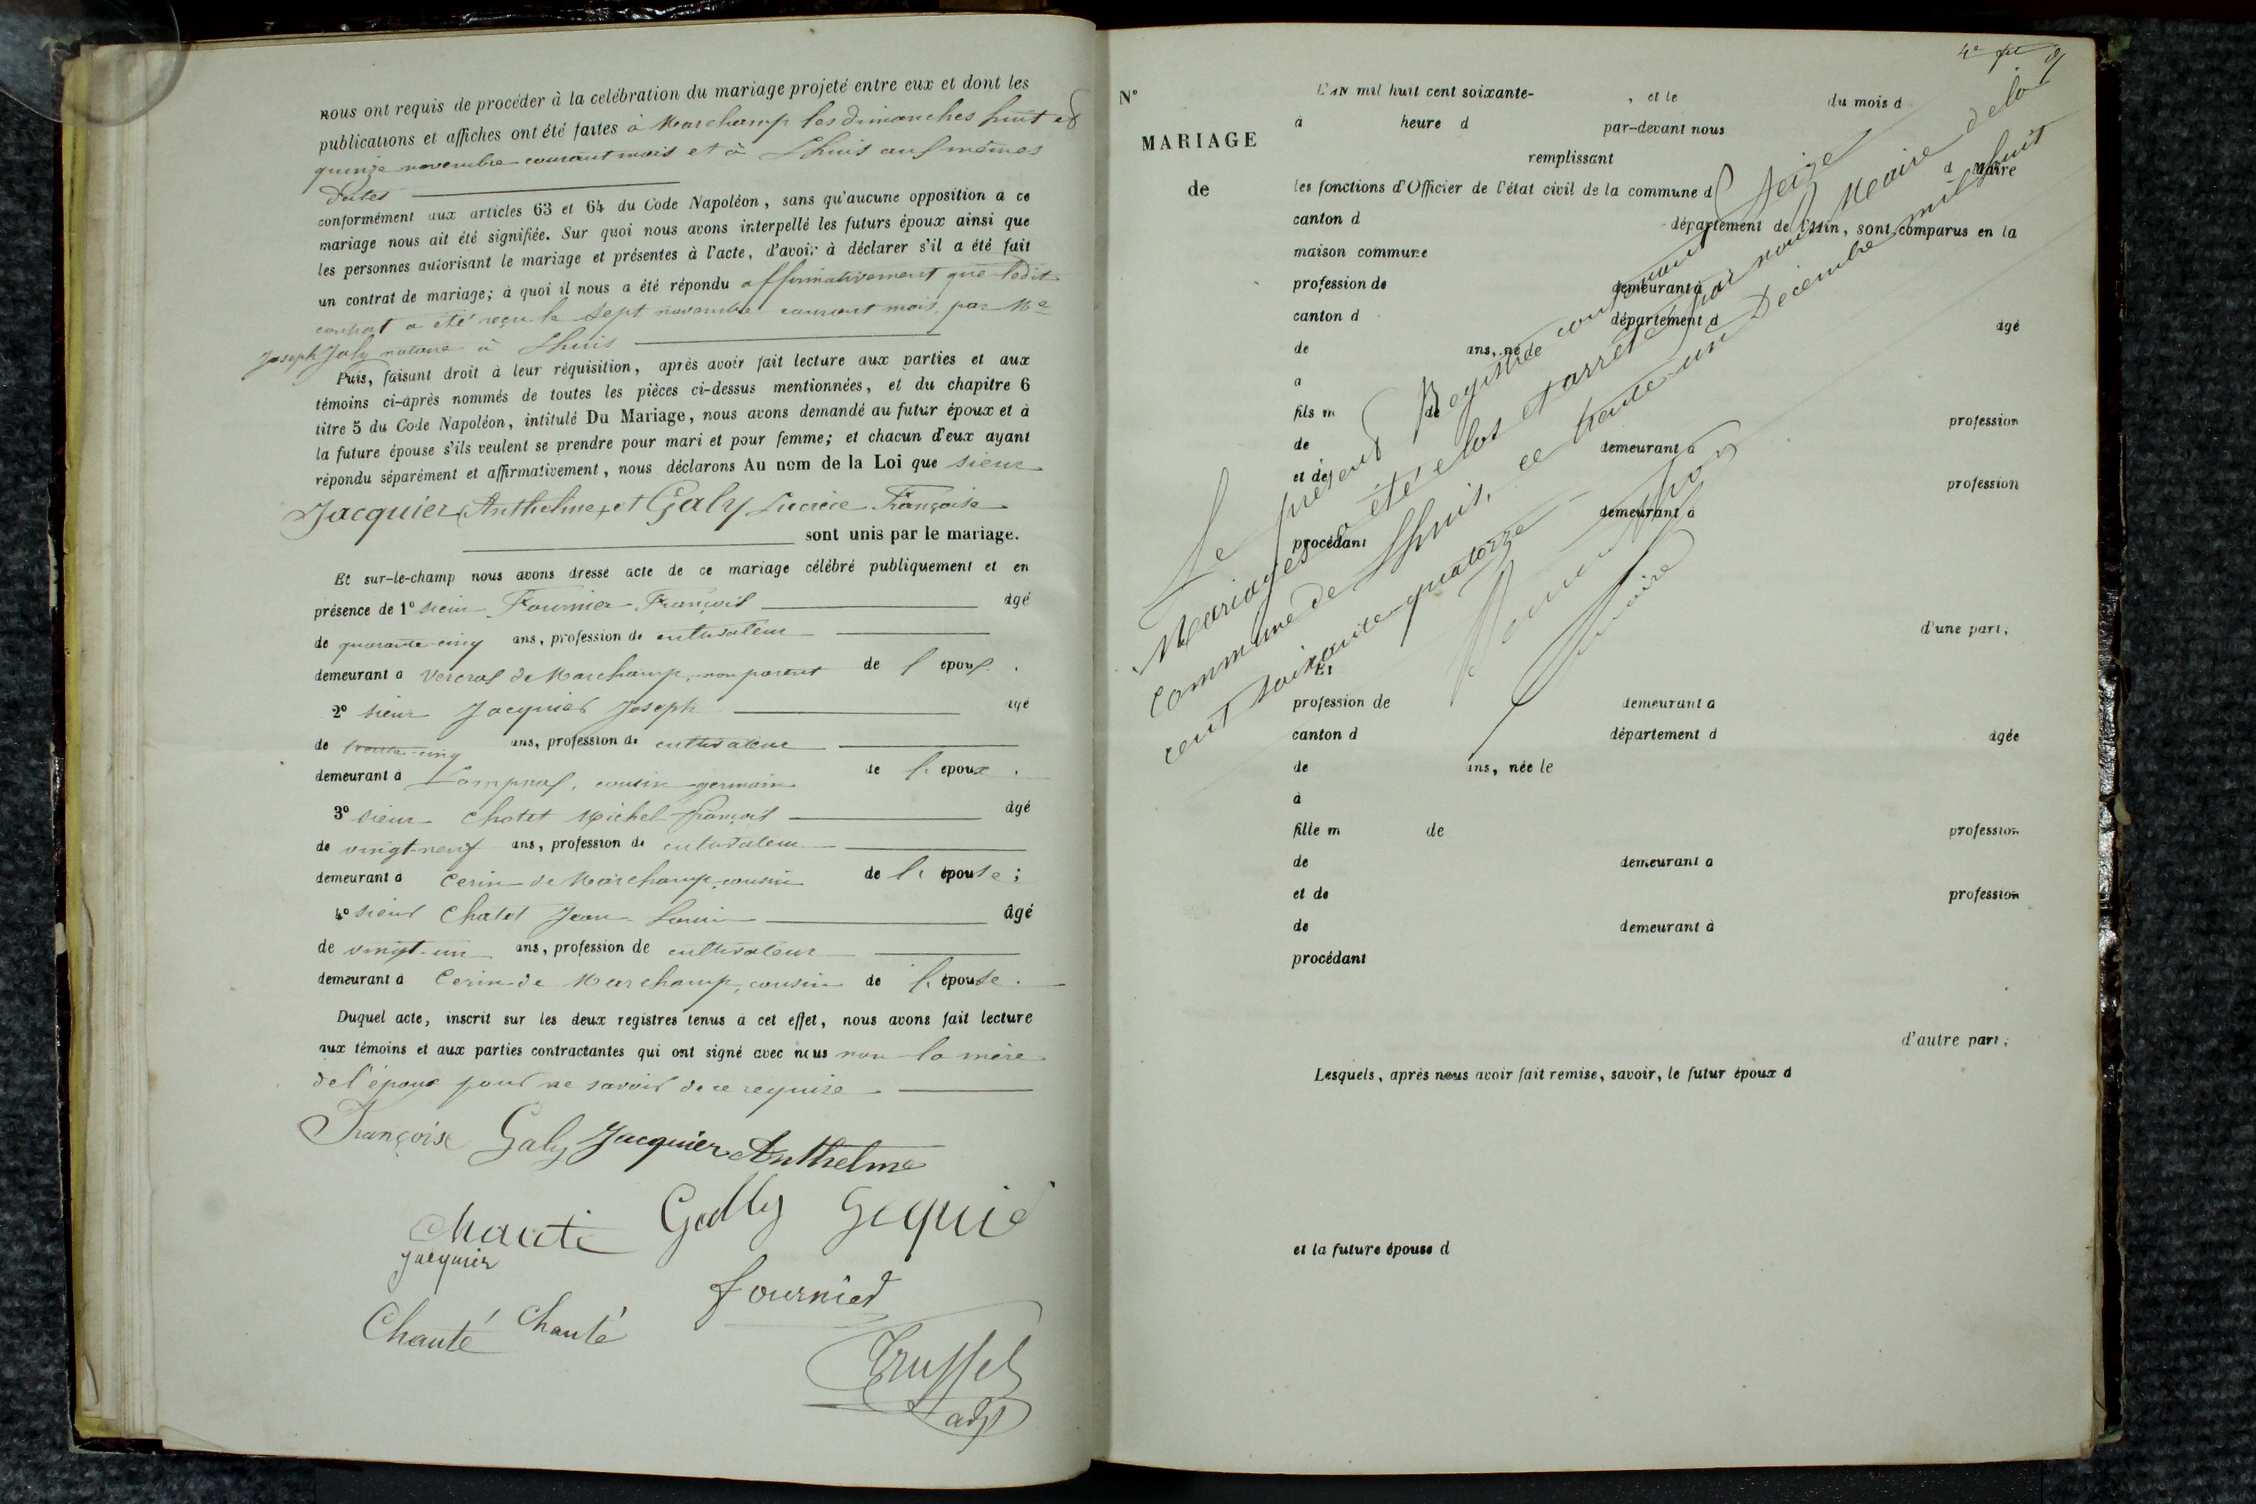 nous ont requis de procéder à la celébration du mariage projeté entre eux et dont les
publications et affiches ont été faites à Marchamp les dimanches huit et
quinze novembre courant mois et à Lhuis aux mêmes
dates
conformément aux articles 63 et 64 du Code Napoléon, sans qu'aucune opposition a ce
mariage nous ait été signifiée. Sur quoi nous avons interpellé les futurs époux ainsi que
les personnes autorisant le mariage et présentes à l'acte, d'avoir à déclarer s'il a été fait
un contrat de mariage; à quoi il nous a été répondu affirmativement que ledit
contrat a été reçu le sept novembre courant mois, par Me
Joseph Jaly notaire à Lhuis
Puis, faisant droit à leur réquisition, après avoir fait lecture aux parties et aux
témoins ci-après nommés de toutes les pièces ci-dessus mentionnées, et du chapitre 6
titre 5 du Code Napoléon, intitulé Du Mariage, nous avons demandé au futur époux et à
la future épouse s'ils veulent se prendre pour mari et pour femme; et chacun d'eux ayant
répondu séparément et affirmativement, nous déclarons Au nom de la Loi que sieur
Jacquier Anthelme, et Galy Lucrèce Françoise
sont unis par le mariage.
Et sur-le-champ nous avons dressé acte de ce mariage célébré publiquement et en
présence de 1° sieur Fournier François âgé
de quarante-cinq ans, profession de cultivateur
demeurant a Vercras de Marchamp, non parent de l'époux.
2° sieur Jacquier Joseph âgé
de trente-cinq ans, profession de cultivateur
demeurant à Lompnas, cousin germain de l'époux.
3° sieur Chatet Michel François âgé
de vingt-neuf ans, profession de cultivateur
demeurant a Cerin de Marchamp, cousin de l'épouse;
4° sieur Chatet Jean Louis âgé
de vingt-un ans, profession de cultivateur
demeurant a Cerin de Marchamp, cousin de l'épouse.
Duquel acte, inscrit sur les deux registres tenus a cet effet, nous avons fait lecture
aux témoins et aux parties contractantes qui ont signé avec nous non la mère
de l'époux pour ne savoir de ce requise
Françoise Galy Jacquier Anthelme
Chauté Gally Gequié
Jacquier
Fournier
Chauté Chauté
Truffet
adjt
N°
MARIAGE
de
L'AN mil huit cent soixante- , et le du mois d
à heure d par-devant nous
remplissant
les fonctions d'Officier de l'état civil de la commune d
canton d département de l'Ain, sont comparus en la
maison commune
profession de demeurant à
canton d département d âgé
de ans, né le
a
fils m de profession
de demeurant a
et de profession
demeurant a
procédant
d'une part;
Et
profession de demeurant a
canton d département d âgée
de ans, née le
à
fille m de profession
de demeurant a
et de profession
de demeurant à
procédant
d'autre part;
Lesquels, après nous avoir fait remise, savoir, le futur époux d
et la future épouse d
Le présent Registre contenant seize
Mariages a été clos et arrêté par nous Maire de la
commune de Lhuis, ce trente un Décembre mil huit
cent soixante-quatorze
Maire